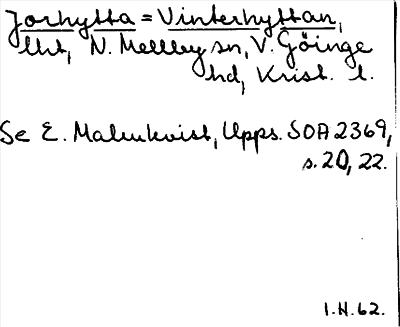 Jorhytta = Vinterhyttan,
lht, N. Mellby sn, V. Göinge
hd, Krist. l.
Se E. Malmkvist, Upps. SOA 2369,
s. 20, 22.
1.H.62.